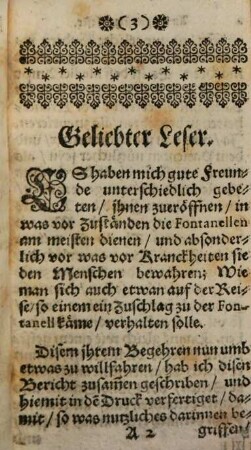 (3)
Geliebter Leser.
ES haben mich gute Freun-
de unterschiedlich gebe-
ten / ihnen zueröffnen / in
was vor Zuständen die Fontanellen
am meisten dienen / und absonder-
lich vor was vor Kranckheiten sie
den Menschen bewahren; Wie
man sich auch etwan auf der Rei-
se / so einem ein Zuschlag zu der Fon-
tanell käme / verhalten solle.
Disem ihrem Begehren nun umb
etwas zu willfahren / hab ich disen
Bericht zusam̃en geschriben / und
hiemit in dẽ Druck verfertiget / da-
mit / so was nutzliches darinnen be-
A 2 griffen /